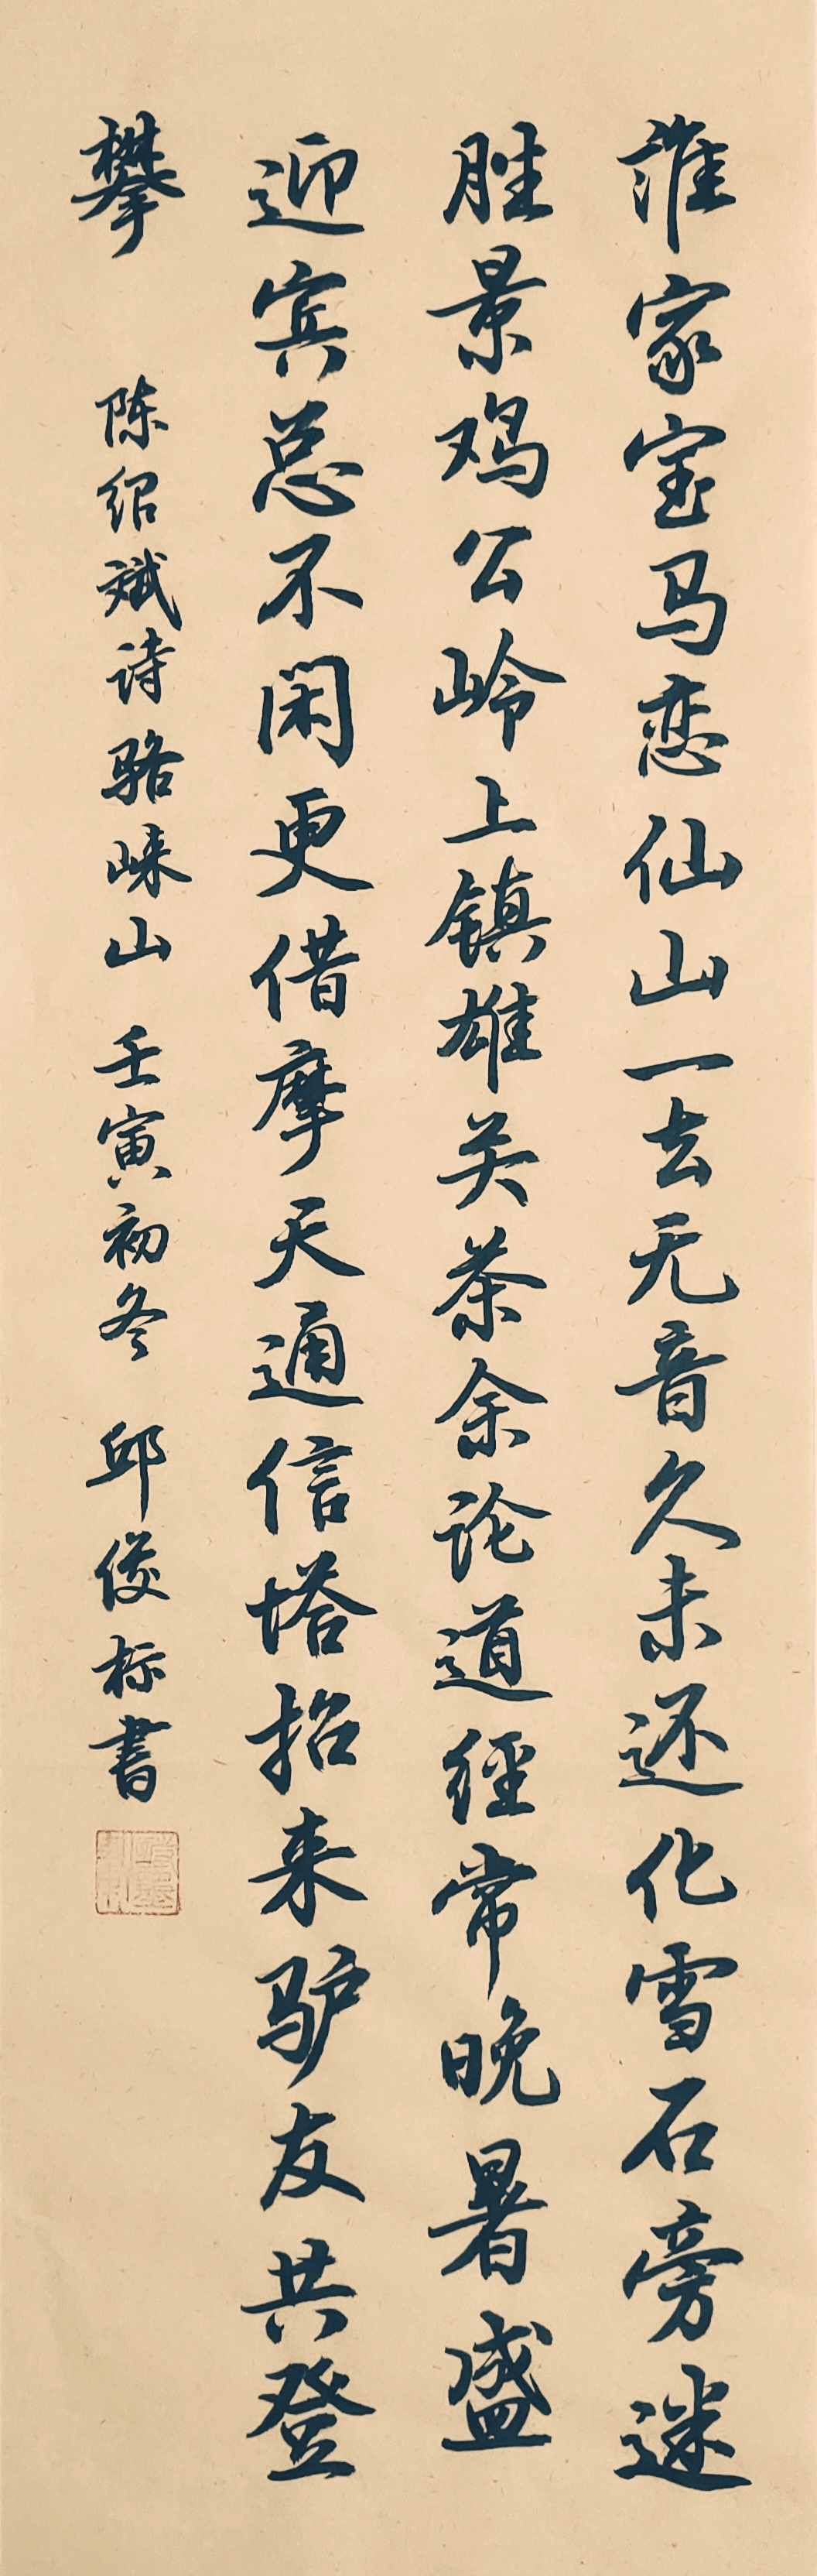 誰家宝马恋仙山一去无音久未还化雪石旁迷
胜景鸡公岭上镇雄关茶余论道經常晚暑盛
迎宾总不闲更借摩天通信塔招来驴友共登
攀 陈绍斌诗骆崃山 壬寅初冬 邱俊标書